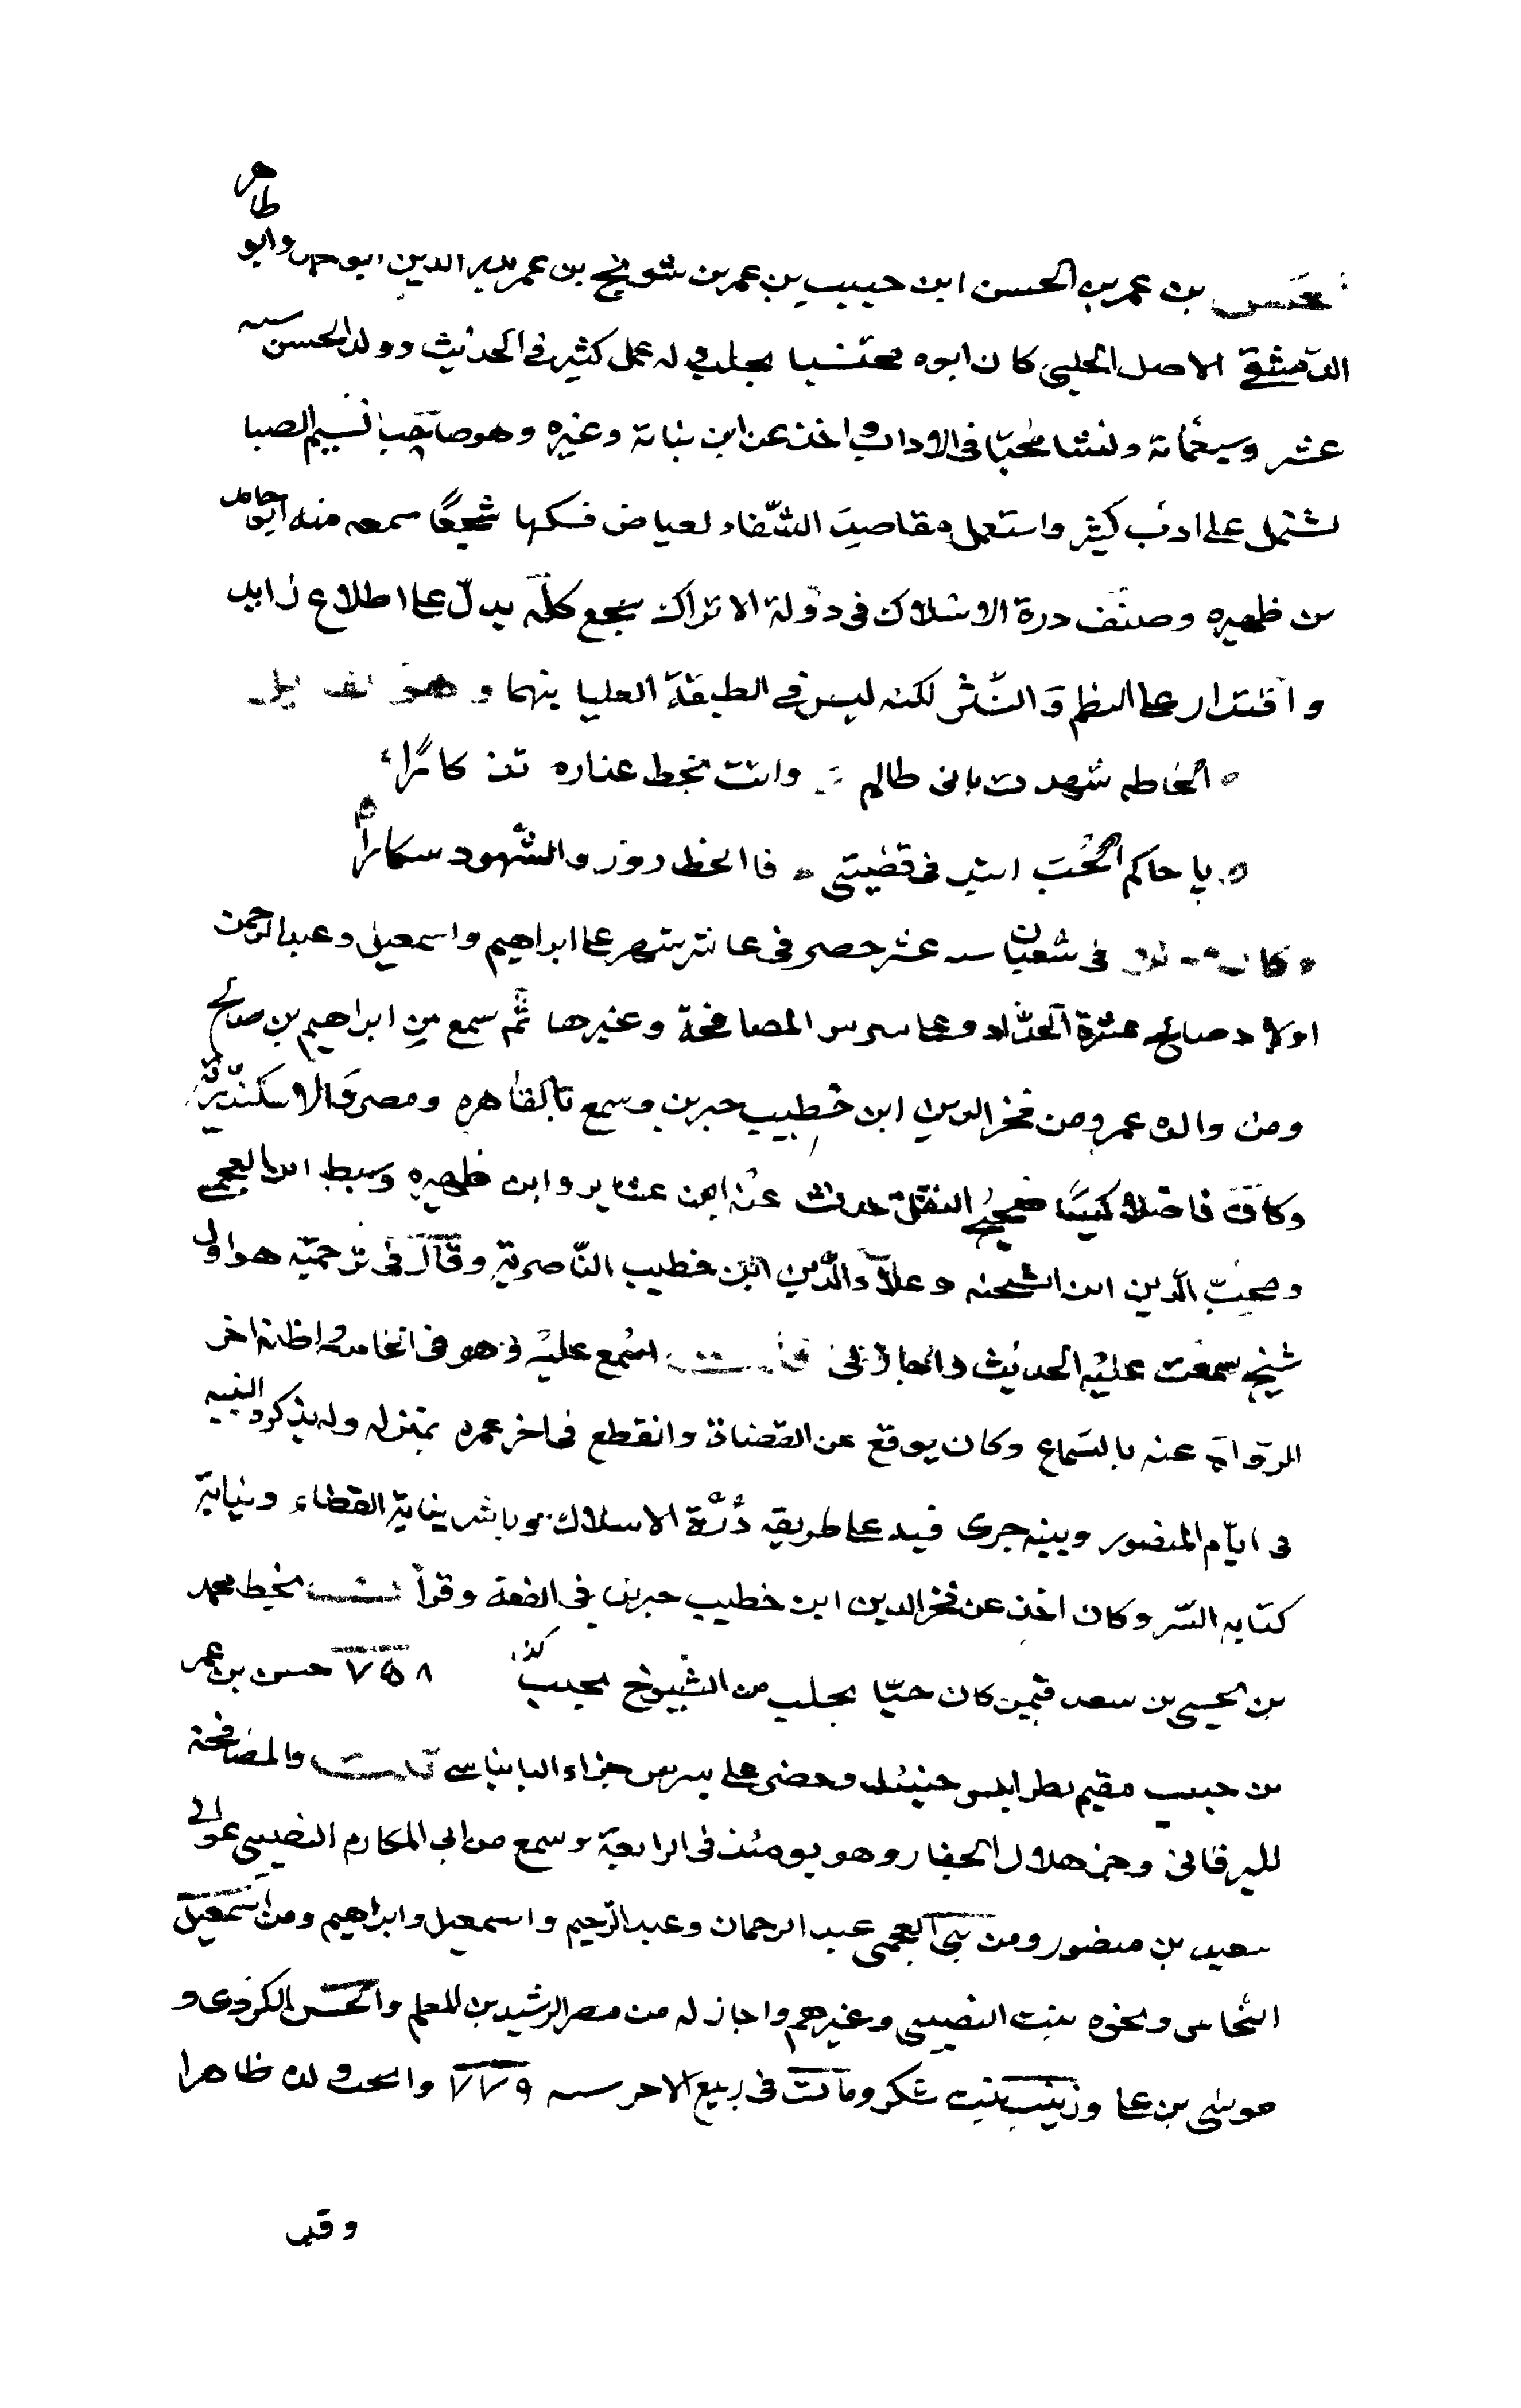 حسن بن عمر بن الحسن ابن حبيب بن عمر بن شويخ بن عمر بدر الدين ابو محمد وابو طاهر
الدمشقي الاصل الحلبي كان ابوه محتسبا بحلب له عمل كثير في الحديث وولد الحسن سنه
عشر وسبعمائة ونشا محبا في الاداب واخذ عن ابن نباتة وغيره وهو صاحب نسيم الصبا
يشتمل على ادب كثير واستعمل مقاصد الشفاء لعياض فسبكها سجعا سمعه منه ابو حامد
بن ظهيره وصنف درة الاسلاك في دولة الاتراك سجع كله يدل على اطلاع زايد
واقتدار على النظم والنثر لكنه ليس في الطبقة العليا بينهما وهو القايل
الحاظه شهدت باني ظالم وانت بخط عذاره تذكارا
يا حاكم الحب اتئد في قضيتي فالخط زور والشهود سكارا
وكان مولده في شعبان سنه عشر حضر في عاشر شهر على ابراهيم واسمعيل وعبد الرحمن
اولاد صالح عشرة الحداد وعلى بيبرس المصافحة وغيرها ثم سمع من ابراهيم بن صالح
ومن والده عمر ومن فخر الدين ابن خطيب جبرين وسمع بالقاهره ومصر والاسكندرية
وكان فاضلا كيسا صحيح النقل حدث عنه ابن عشاير وابن ظهيره وسبط ابن العجمي
ومحب الدين ابن الشحنه وعلاء الدين ابن خطيب الناصرية وقال في ترجمته هو اول
شيخ سمعت عليه الحديث واجاز لي اسمع عليه وهو في الخامسه واظنه اخر
الرواة عنه بالسماع وكان يوقع عن القضاة وانقطع في اخر عمره بمنزله وله تذكرة النبيه
في ايام المنصور وبنيه جرى فيه على طريقه درة الاسلاك وباشر نيابة القضاء ونيابة
كتابه السر وكان اخذ عن فخر الدين ابن خطيب جبرين في الفقه وقرأ بخط محمد
بن يحيى بن سعد فيمن كان حيا بحلب من الشيوخ كذا ٧٥٨ حسن بن عمر
بن حبيب مقيم بطرابلس حينئذ وحضر على بيبرس جزء البانياسي والمصافحة
للبرقاني وجز هلال الحفار وهو يومئذ في الرابعة وسمع من ابي المكارم النصيبي عوالي
سعيد بن منصور ومن بني العجمي عبد الرحمان وعبد الرحيم واسمعيل وابراهيم ومن اسمعيل
النحاس ونخوه بنت النصيبي وغيرهم واجاز له من مصر الرشيد بن المعلم والحسن الكردي و
موسى بن على وزينب بنت شكر ومات في ربيع الاخر سنه ٧٧٩ وانجب ولده طاهرا
وقد